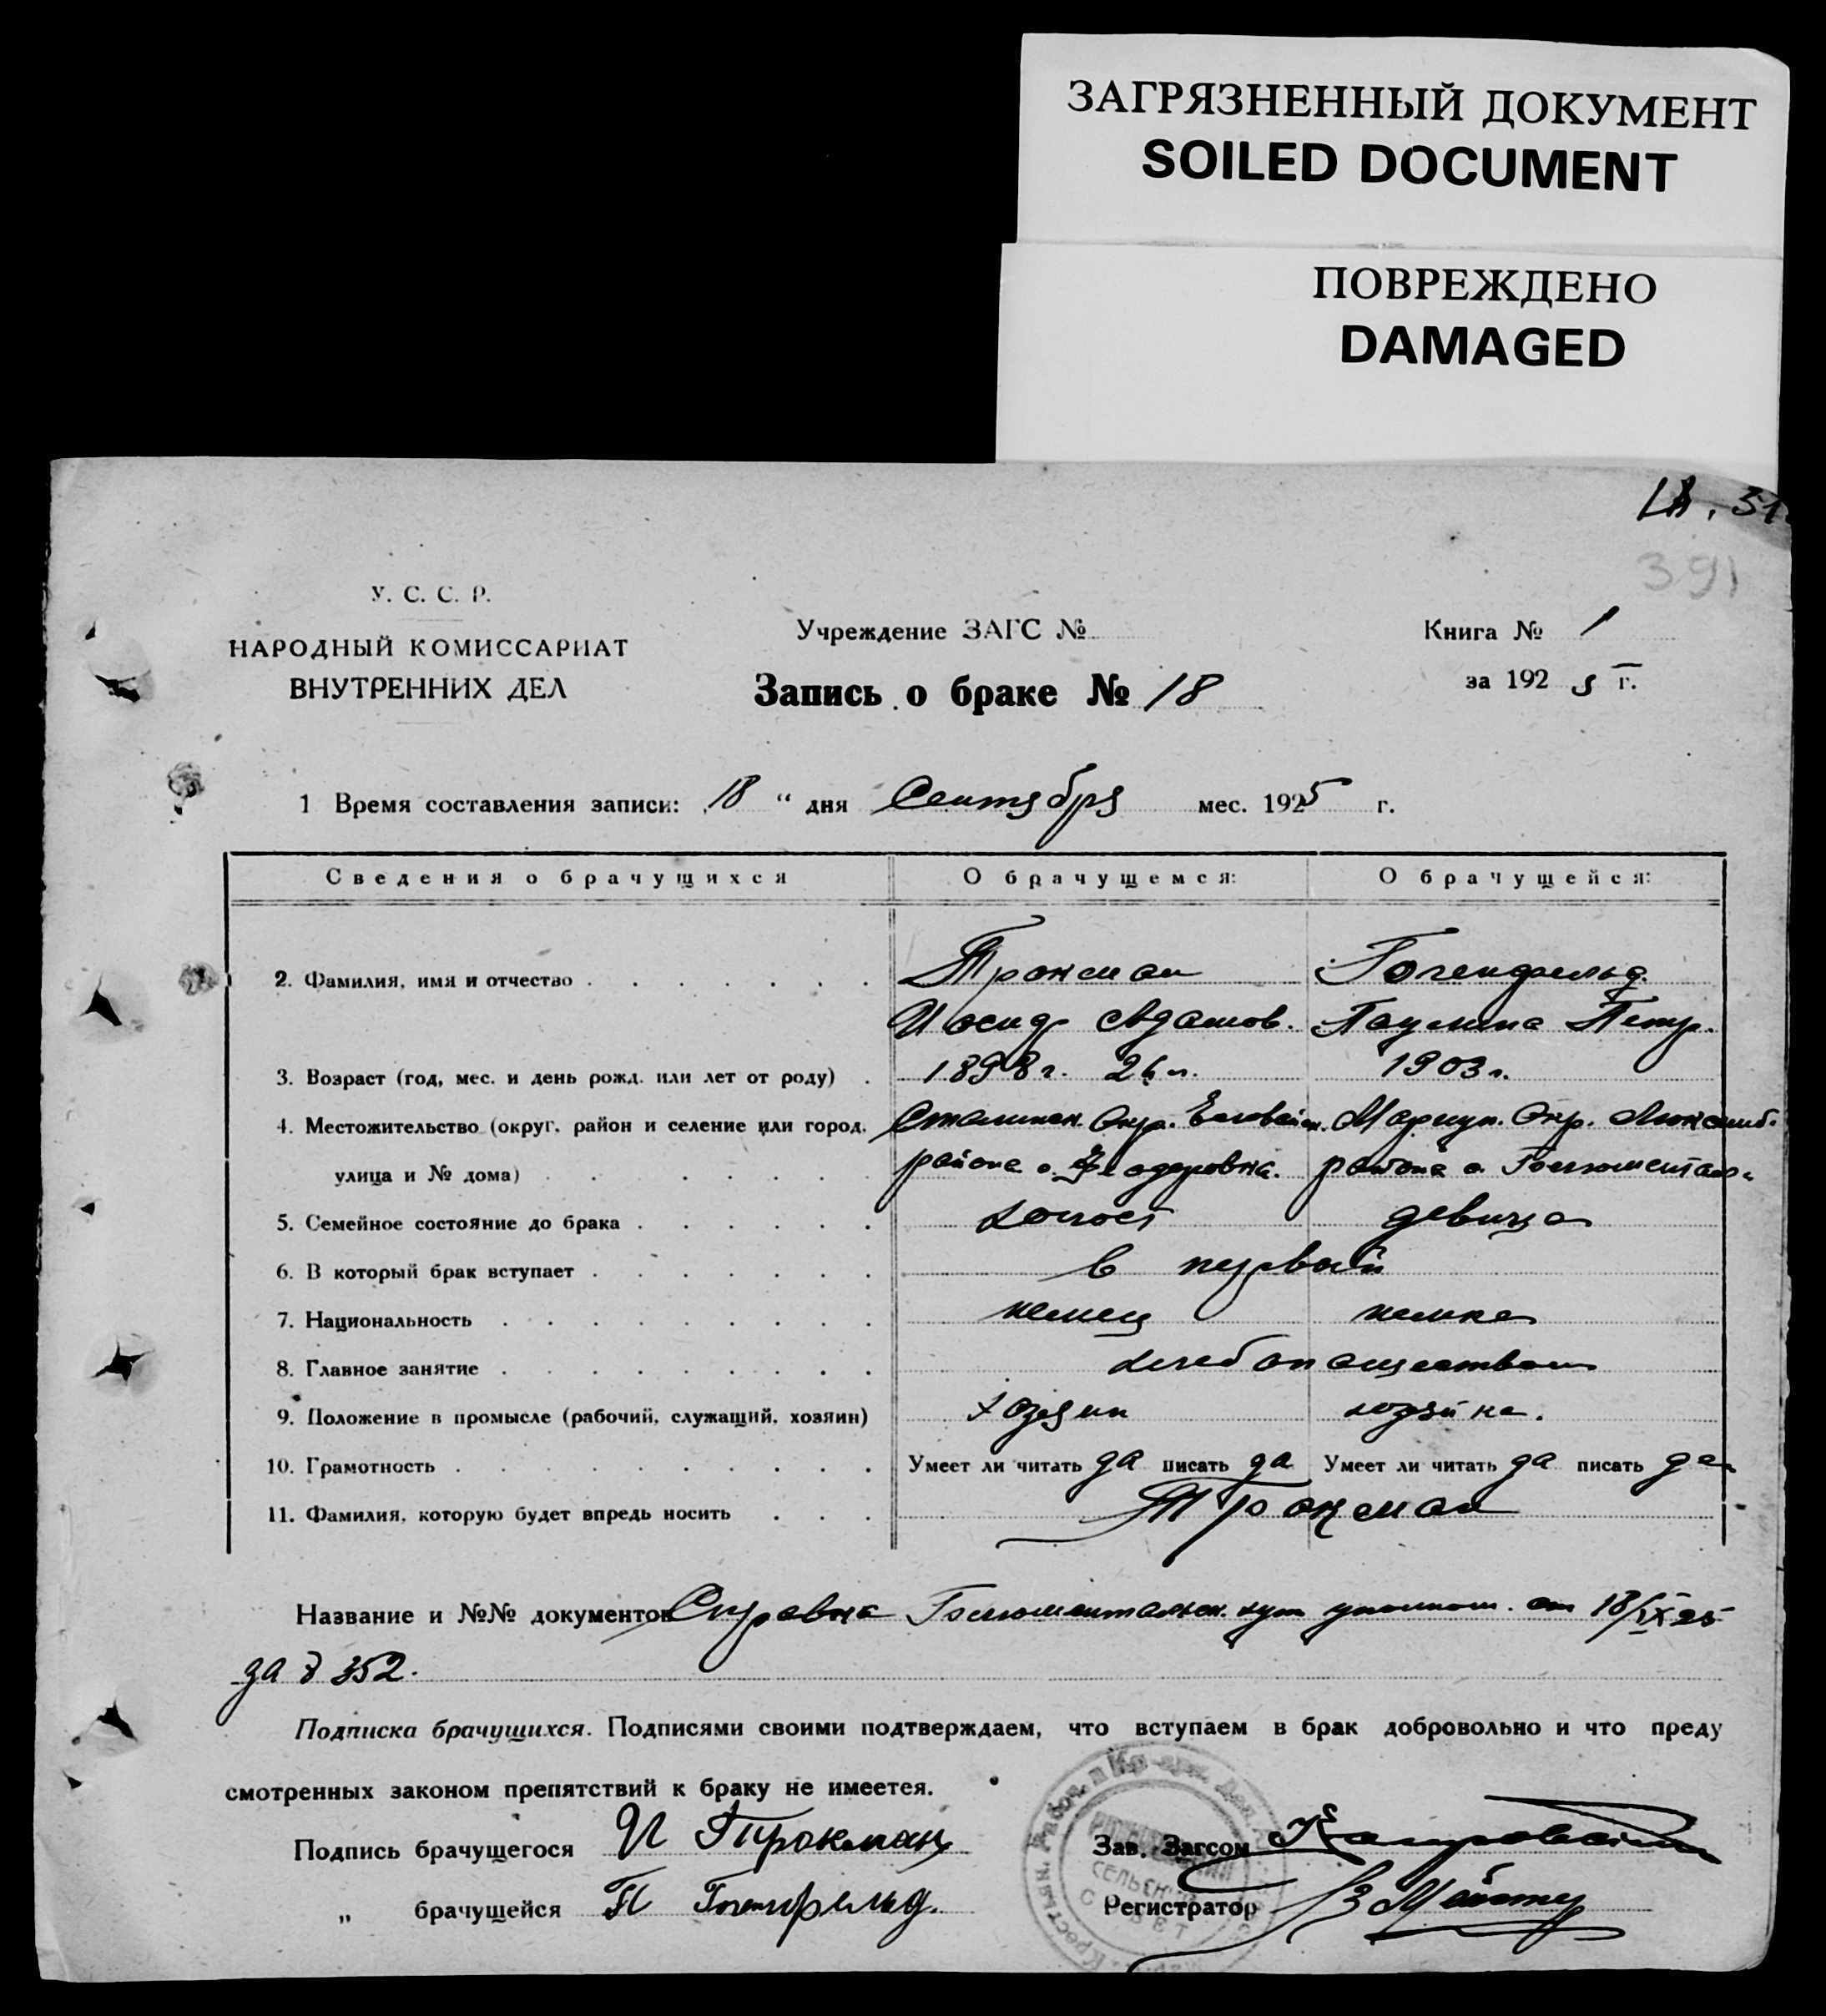 ЗАГРЯЗНЕННЫЙ ДОКУМЕНТ
SOILED DOCUMENT
ПОВРЕЖДЕНО
DAMAGED
391
У. С. С. Р.
НАРОДНЫЙ КОМИССАРИАТ
ВНУТРЕННИХ ДЕЛ
Учреждение ЗАГС №
Запись о браке № 18
Книга № 1
за 1925 г.
1 Время составления записи: 18 " дня Сентября мес. 1925 г.
Сведения о брачущихся О брачущемся: О брачущейся:
2. Фамилия, имя и отчество Трокман Гогенфельд
Иосиф Адамов. Паулина Петр.
3. Возраст (год, мес. и день рожд. или лет от роду) 1898 г. 26 л. 1903 г.
4. Местожительство (округ, район и селение или город, Сталинск. Окр. Мариуп. Окр. Люксемб.
улица и № дома) района с. Феодоровка. района с.
5. Семейное состояние до брака холост девица
6. В который брак вступает в первый
7. Национальность немец немка
8. Главное занятие хлебопашеством
9. Положение в промысле (рабочий, служащий, хозяин) хозяин хозяйка.
10. Грамотность Умеет ли читать да писать да Умеет ли читать да писать да
11. Фамилия, которую будет впредь носить Трокман
Название и №№ документов Справка от 18/IX 25
за № 352.
Подписка брачущихся. Подписями своими подтверждаем, что вступаем в брак добровольно и что преду
смотренных законом препятствий к браку не имеется.
Подпись брачущегося И Трокман Зав. Загсом
„ брачущейся П Гогенфельд. Регистратор
СЕЛЬСК
СОВЕТ